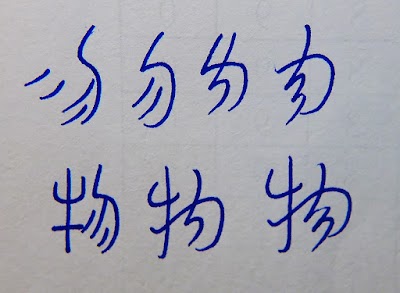 勿勿勿勿
物物物